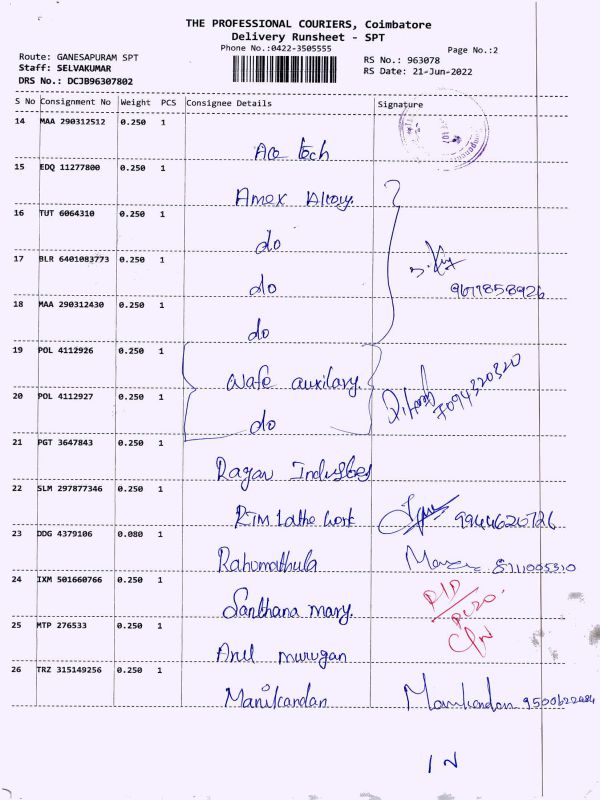 THE PROFESSIONAL COURIERS, Coimbatore
Delivery Runsheet - SPT
Phone No.:0422-3505555
Page No.:2
Route: GANESAPURAM SPT
Staff: SELVAKUMAR
DRS No.: DCJB96307802
RS No.: 963078
RS Date: 21-Jun-2022
S No Consignment No Weight PCS Consignee Details Signature
14 MAA 290312512 0.250 1
Ace tech
15 EDQ 11277800 0.250 1
Amex Alloy.
16 TUT 6064310 0.250 1
do
17 BLR 6401083773 0.250 1
do
9677858926
18 MAA 290312430 0.250 1
do
19 POL 4112926 0.250 1
Wafe auxilary.
20 POL 4112927 0.250 1
do
7094320320
21 PGT 3647843 0.250 1
Ragav Industries
22 SLM 297877346 0.250 1
RIM Lathe work 9944626726
23 DDG 4379106 0.080 1
Rahumathula
24 IXM 501660766 0.250 1
Santhana mary.
25 MTP 276533 0.250 1
Arul murugan
26 TRZ 315149256 0.250 1
Manikandan Manikandan